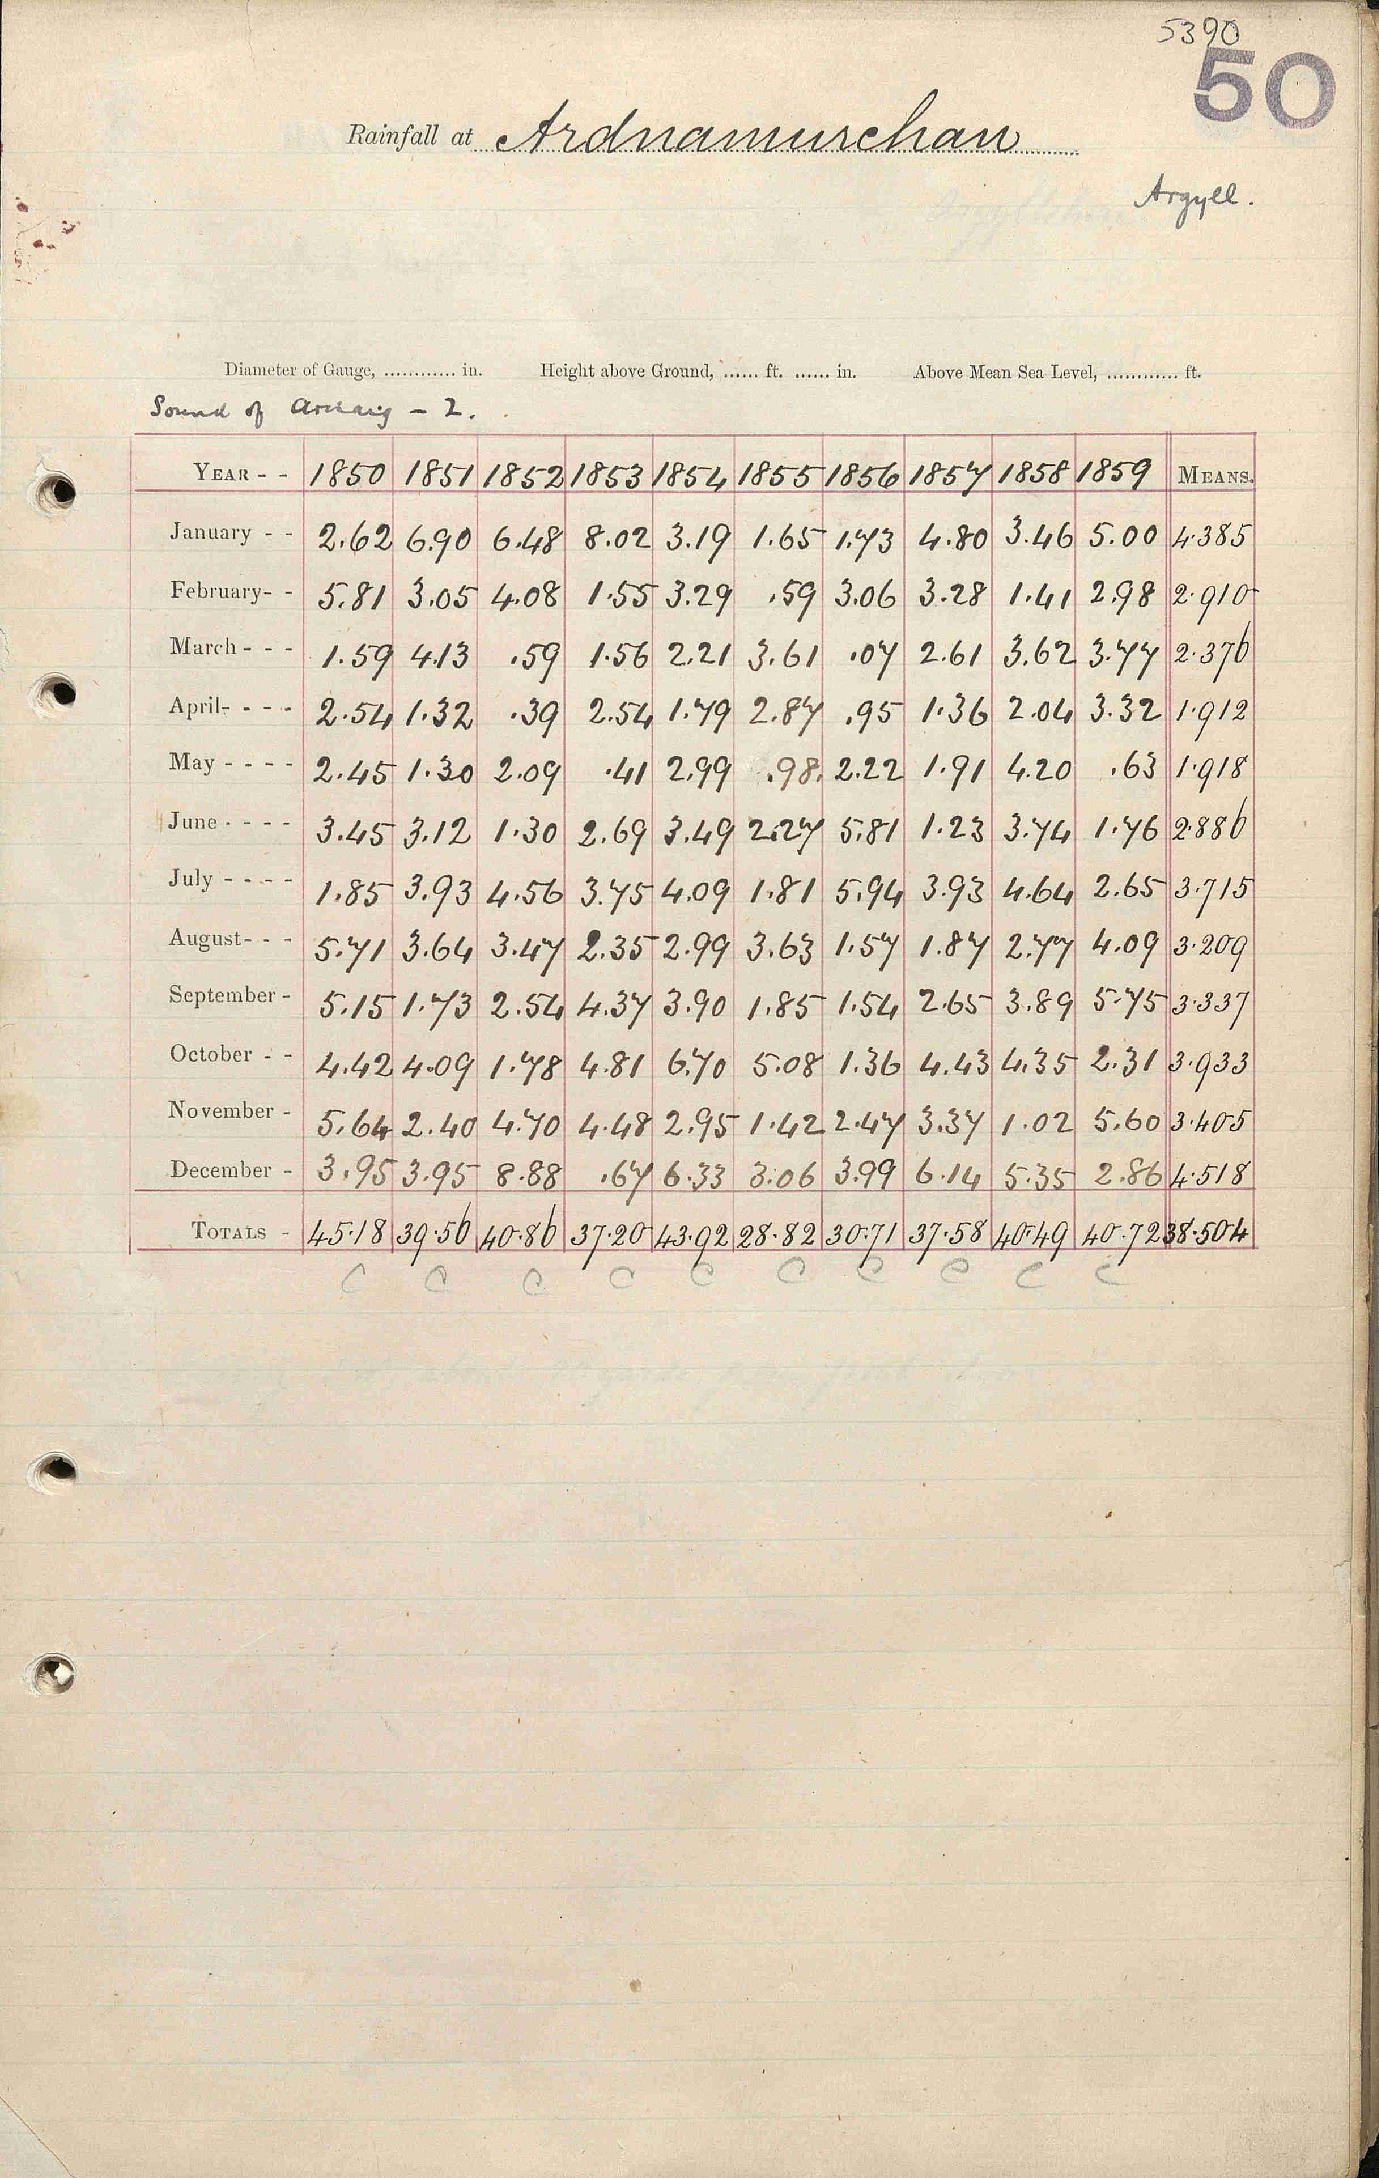 5390
50
Rainfall at Ardnamurchan
Argyll.
Diameter of Gauge, ............ in. Height above Ground, ...... ft. ...... in. Above Mean Sea Level, ............ ft.
Sound of - 2.
YEAR - - 1850 1851 1852 1853 1854 1855 1856 1857 1858 1859 MEANS.
January - - 2.62 6.90 6.48 8.02 3.19 1.65 1.73 4.80 3.46 5.00 4.385
February - - 5.81 3.05 4.08 1.55 3.29 .59 3.06 3.28 1.41 2.98 2.910
March - - - 1.59 4.13 .59 1.56 2.21 3.61 .07 2.61 3.62 3.77 2.376
April - - - - 2.54 1.32 .39 2.54 1.79 2.87 .95 1.36 2.04 3.32 1.912
May - - - - 2.45 1.30 2.09 .41 2.99 .98 2.22 1.91 4.20 .63 1.918
June - - - - 3.45 3.12 1.30 2.69 3.49 2.27 5.81 1.23 3.74 1.76 2.886
July - - - - 1.85 3.93 4.56 3.75 4.09 1.81 5.94 3.93 4.64 2.65 3.715
August - - - 5.71 3.64 3.47 2.35 2.99 3.63 1.57 1.87 2.77 4.09 3.209
September - 5.15 1.73 2.54 4.37 3.90 1.85 1.54 2.65 3.89 5.75 3.337
October - - 4.42 4.09 1.78 4.81 6.70 5.08 1.36 4.43 4.35 2.31 3.933
November - 5.64 2.40 4.70 4.48 2.95 1.42 2.47 3.37 1.02 5.60 3.405
December - 3.95 3.95 8.88 .67 6.33 3.06 3.99 6.14 5.35 2.86 4.518
TOTALS - 45.18 39.56 40.86 37.20 43.92 28.82 30.71 37.58 40.49 40.72 38.504
C C C C C C C C C C